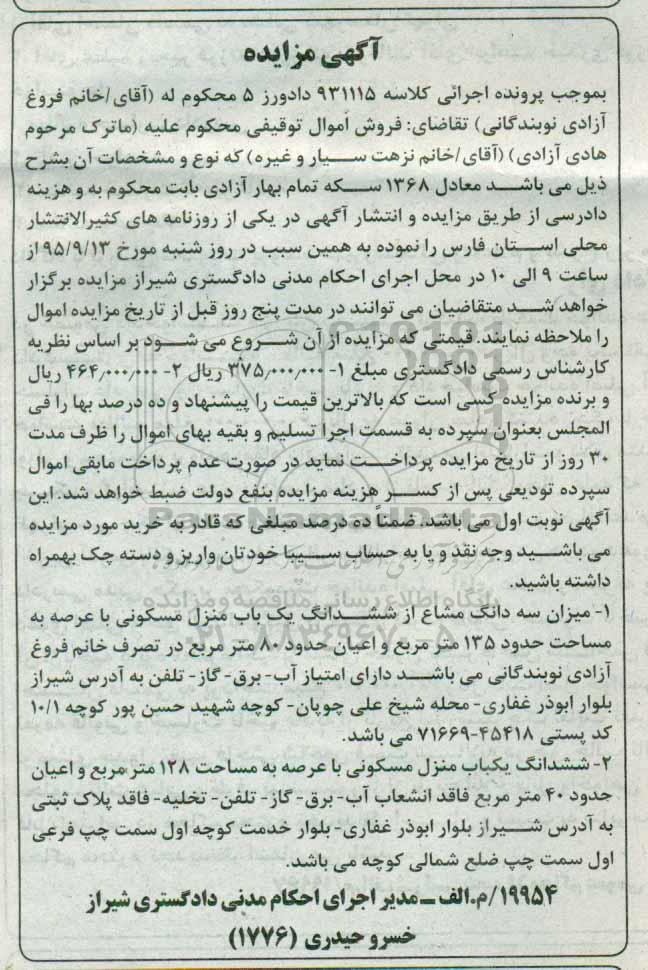 آگهی مزایده
بموجب پرونده اجرائی کلاسه ۹۳۱۱۱۵ دادورز ۵ محکوم له (آقای/خانم فروغ
آزادی نوبندگانی) تقاضای: فروش اموال توقیفی محکوم علیه (ماترک مرحوم
هادی آزادی) (آقای/خانم نزهت سیار و غیره) که نوع و مشخصات آن بشرح
ذیل می باشد معادل ۱۳۶۸ سکه تمام بهار آزادی بابت محکوم به و هزینه
دادرسی از طریق مزایده و انتشار آگهی در یکی از روزنامه های کثیرالانتشار
محلی استان فارس را نموده به همین سبب در روز شنبه مورخ ۹۵/۹/۱۳ از
ساعت ۹ الی ۱۰ در محل اجرای احکام مدنی دادگستری شیراز مزایده برگزار
خواهد شد متقاضیان می توانند در مدت پنج روز قبل از تاریخ مزایده اموال
را ملاحظه نمایند. قیمتی که مزایده از آن شروع می شود بر اساس نظریه
کارشناس رسمی دادگستری مبلغ ۱- ۳۷۵٫۰۰۰٫۰۰۰ ریال ۲- ۴۶۴٫۰۰۰٫۰۰۰ ریال
و برنده مزایده کسی است که بالاترین قیمت را پیشنهاد و ده درصد بها را فی
المجلس بعنوان سپرده به قسمت اجرا تسلیم و بقیه بهای اموال را ظرف مدت
۳۰ روز از تاریخ مزایده پرداخت نماید در صورت عدم پرداخت مابقی اموال
سپرده تودیعی پس از کسر هزینه مزایده بنفع دولت ضبط خواهد شد. این
آگهی نوبت اول می باشد. ضمناً ده درصد مبلغی که قادر به خرید مورد مزایده
می باشید وجه نقد و یا به حساب سیبا خودتان واریز و دسته چک بهمراه
داشته باشید.
۱- میزان سه دانگ مشاع از ششدانگ یک باب منزل مسکونی با عرصه به
مساحت حدود ۱۳۵ متر مربع و اعیان حدود ۸۰ متر مربع در تصرف خانم فروغ
آزادی نوبندگانی می باشد دارای امتیاز آب- برق- گاز- تلفن به آدرس شیراز
بلوار ابوذر غفاری- محله شیخ علی چوپان- کوچه شهید حسن پور کوچه ۱۰/۱
کد پستی ۴۵۴۱۸-۷۱۶۶۹ می باشد.
۲- ششدانگ یکباب منزل مسکونی با عرصه به مساحت ۱۲۸ متر مربع و اعیان
حدود ۴۰ متر مربع فاقد انشعاب آب- برق- گاز- تلفن- تخلیه- فاقد پلاک ثبتی
به آدرس شیراز بلوار ابوذر غفاری- بلوار خدمت کوچه اول سمت چپ فرعی
اول سمت چپ ضلع شمالی کوچه می باشد.
۱۹۹۵۴/م.الف ـ مدیر اجرای احکام مدنی دادگستری شیراز
خسرو حیدری (۱۷۷۶)
ParsNamadData
پایگاه اطلاع رسانی مناقصه و مزایده
۰۲۱-۸۸۳۴۹۶۷۰-۵